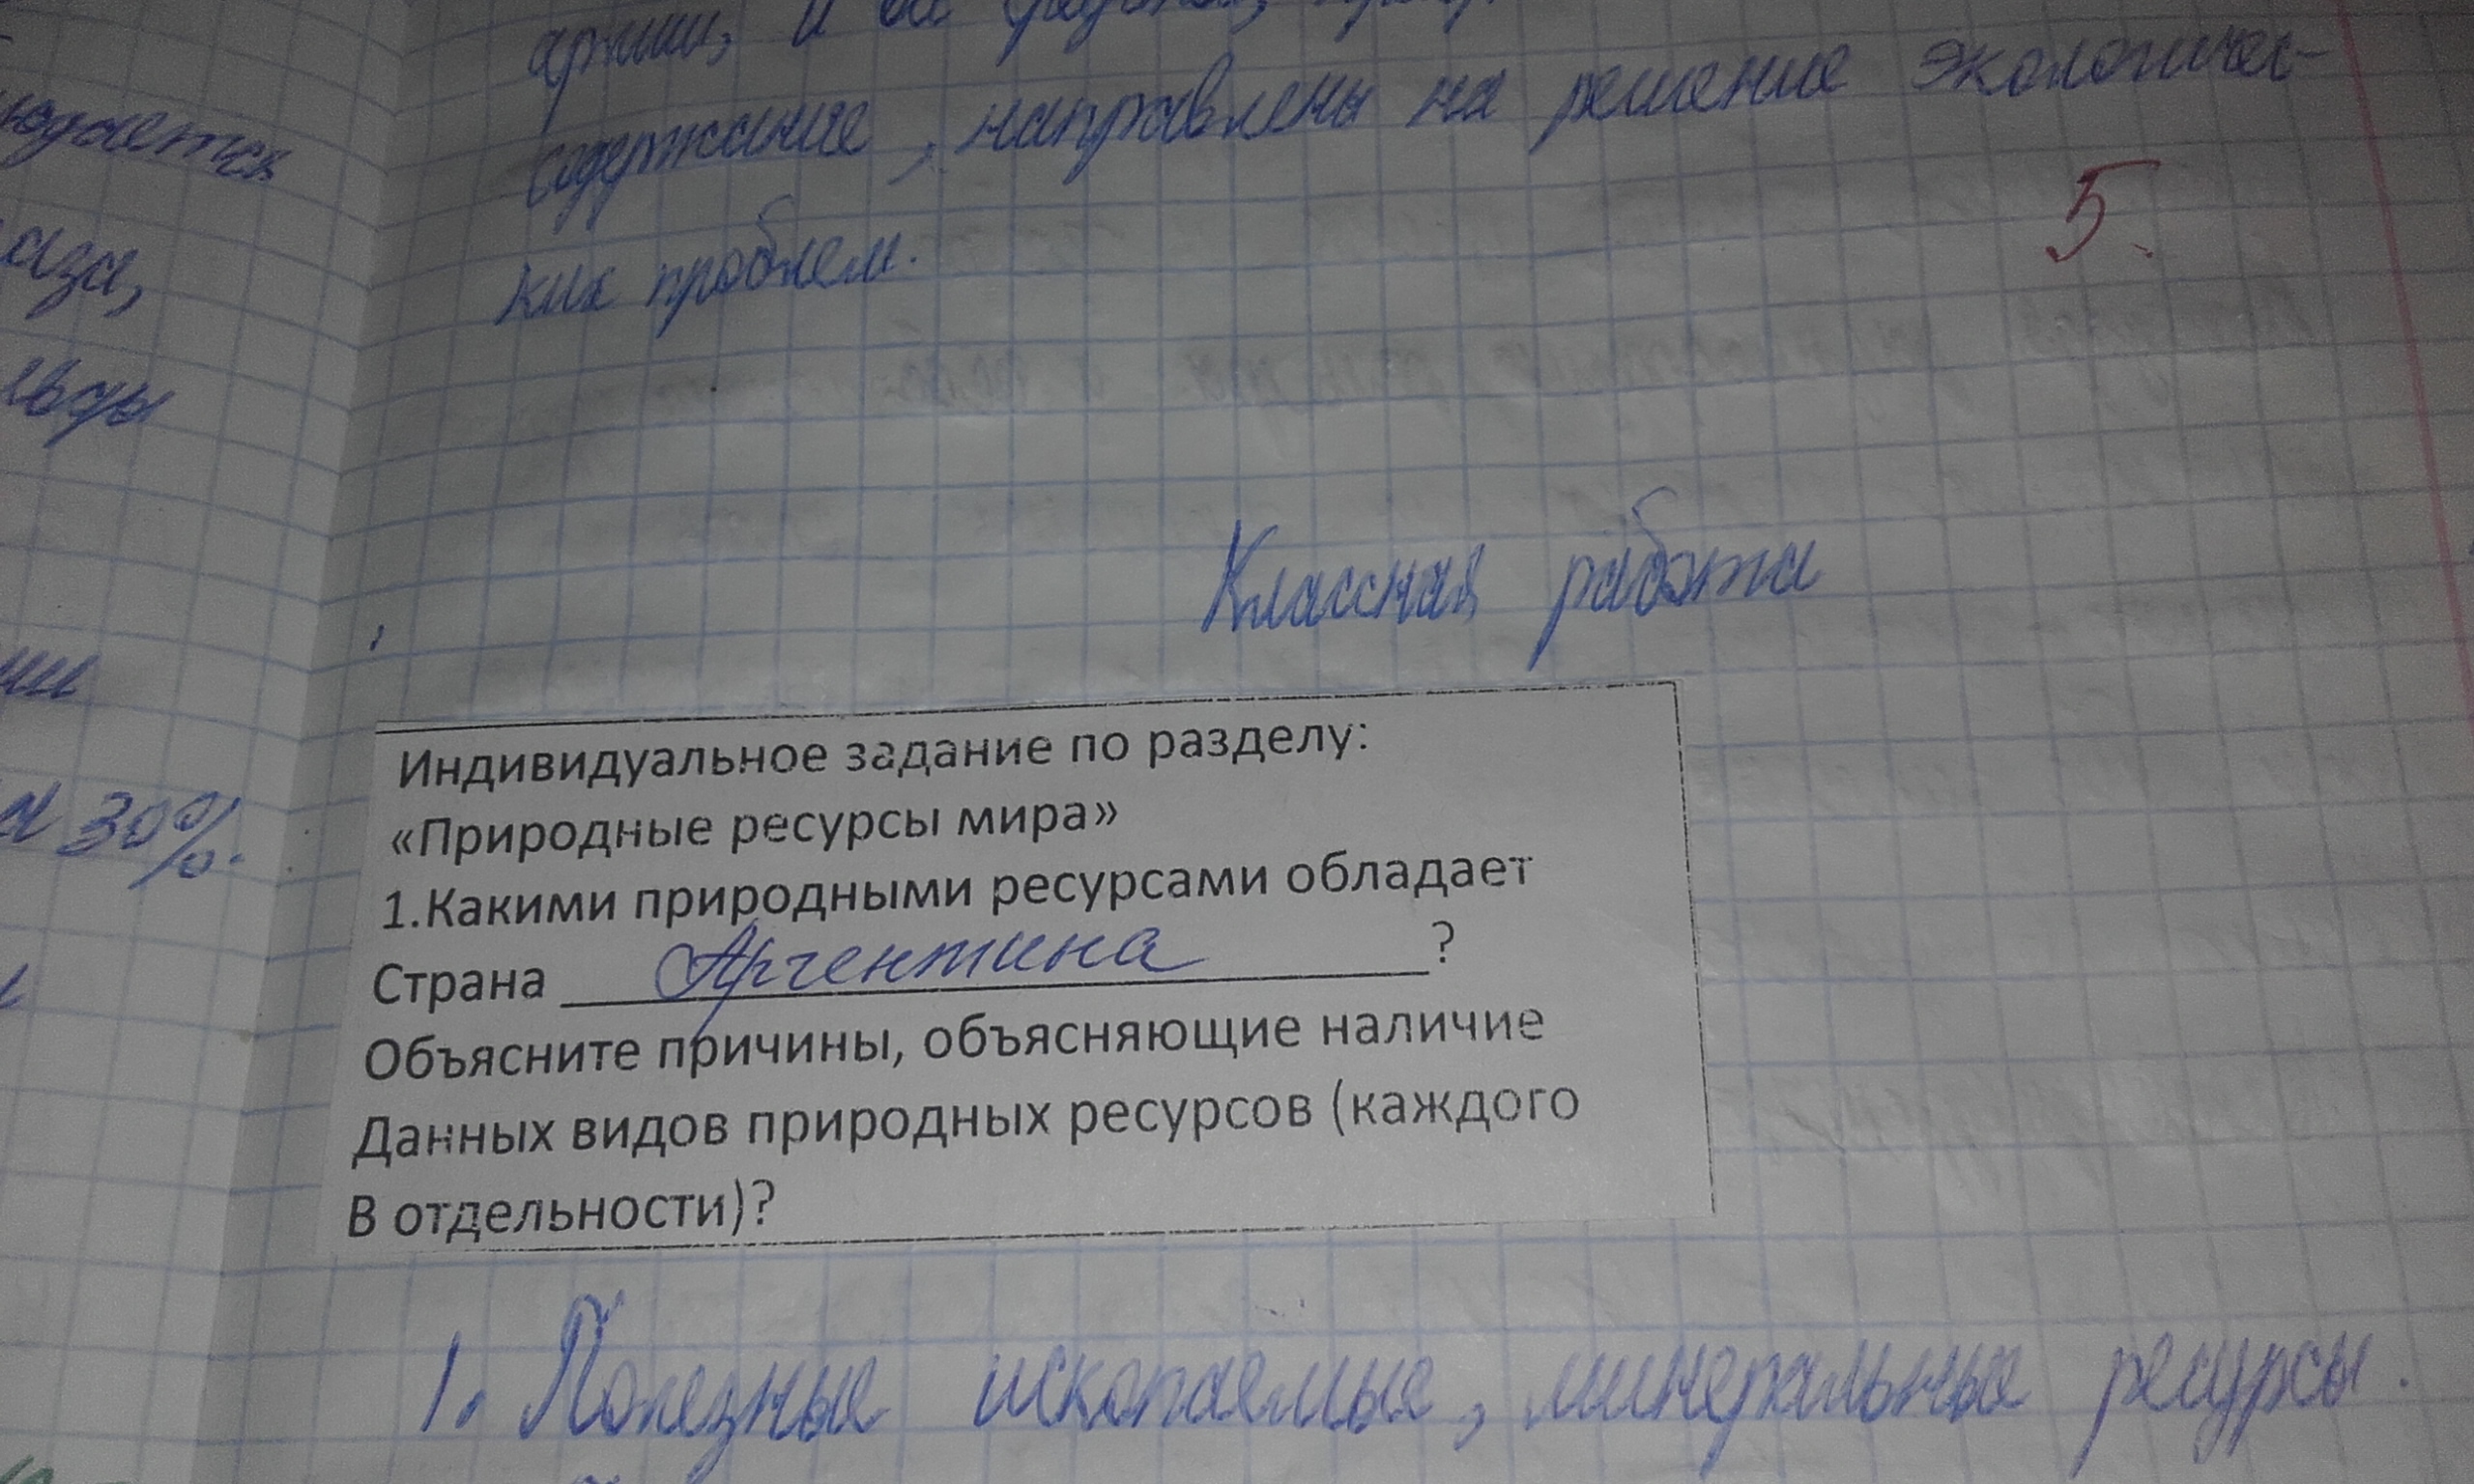 содержание, направлены на решение экологичес-
ких проблем.
5
Классная работа
Индивидуальное задание по разделу:
«Природные ресурсы мира»
1.Какими природными ресурсами обладает
Страна Аргентина ?
Объясните причины, объясняющие наличие
Данных видов природных ресурсов (каждого
В отдельности)?
1. Полезные ископаемые, минеральные ресурсы.
30%.